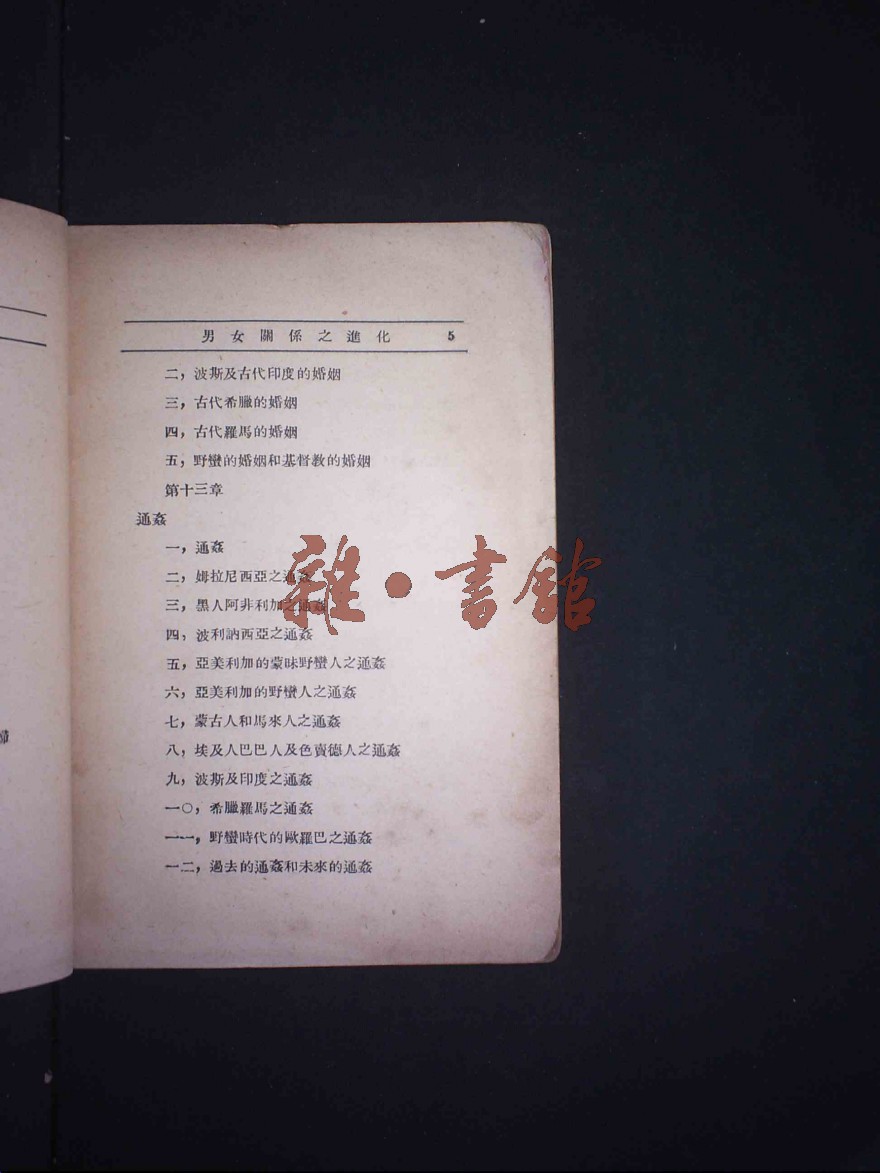 男女關係之進化 5
二，波斯及古代印度的婚姻
三，古代希臘的婚姻
四，古代羅馬的婚姻
五，野蠻的婚姻和基督敎的婚姻
第十三章
通姦
一，通姦
二，姆拉尼西亞之通姦
三，黑人阿非利加之通姦
四，波利訥西亞之通姦
五，亞美利加的蒙昧野蠻人之通姦
六，亞美利加的野蠻人之通姦
七，蒙古人和馬來人之通姦
八，埃及人巴巴人及色賣德人之通姦
九，波斯及印度之通姦
一〇，希臘羅馬之通姦
一一，野蠻時代的歐羅巴之通姦
一二，過去的通姦和未來的通姦
雜·書館